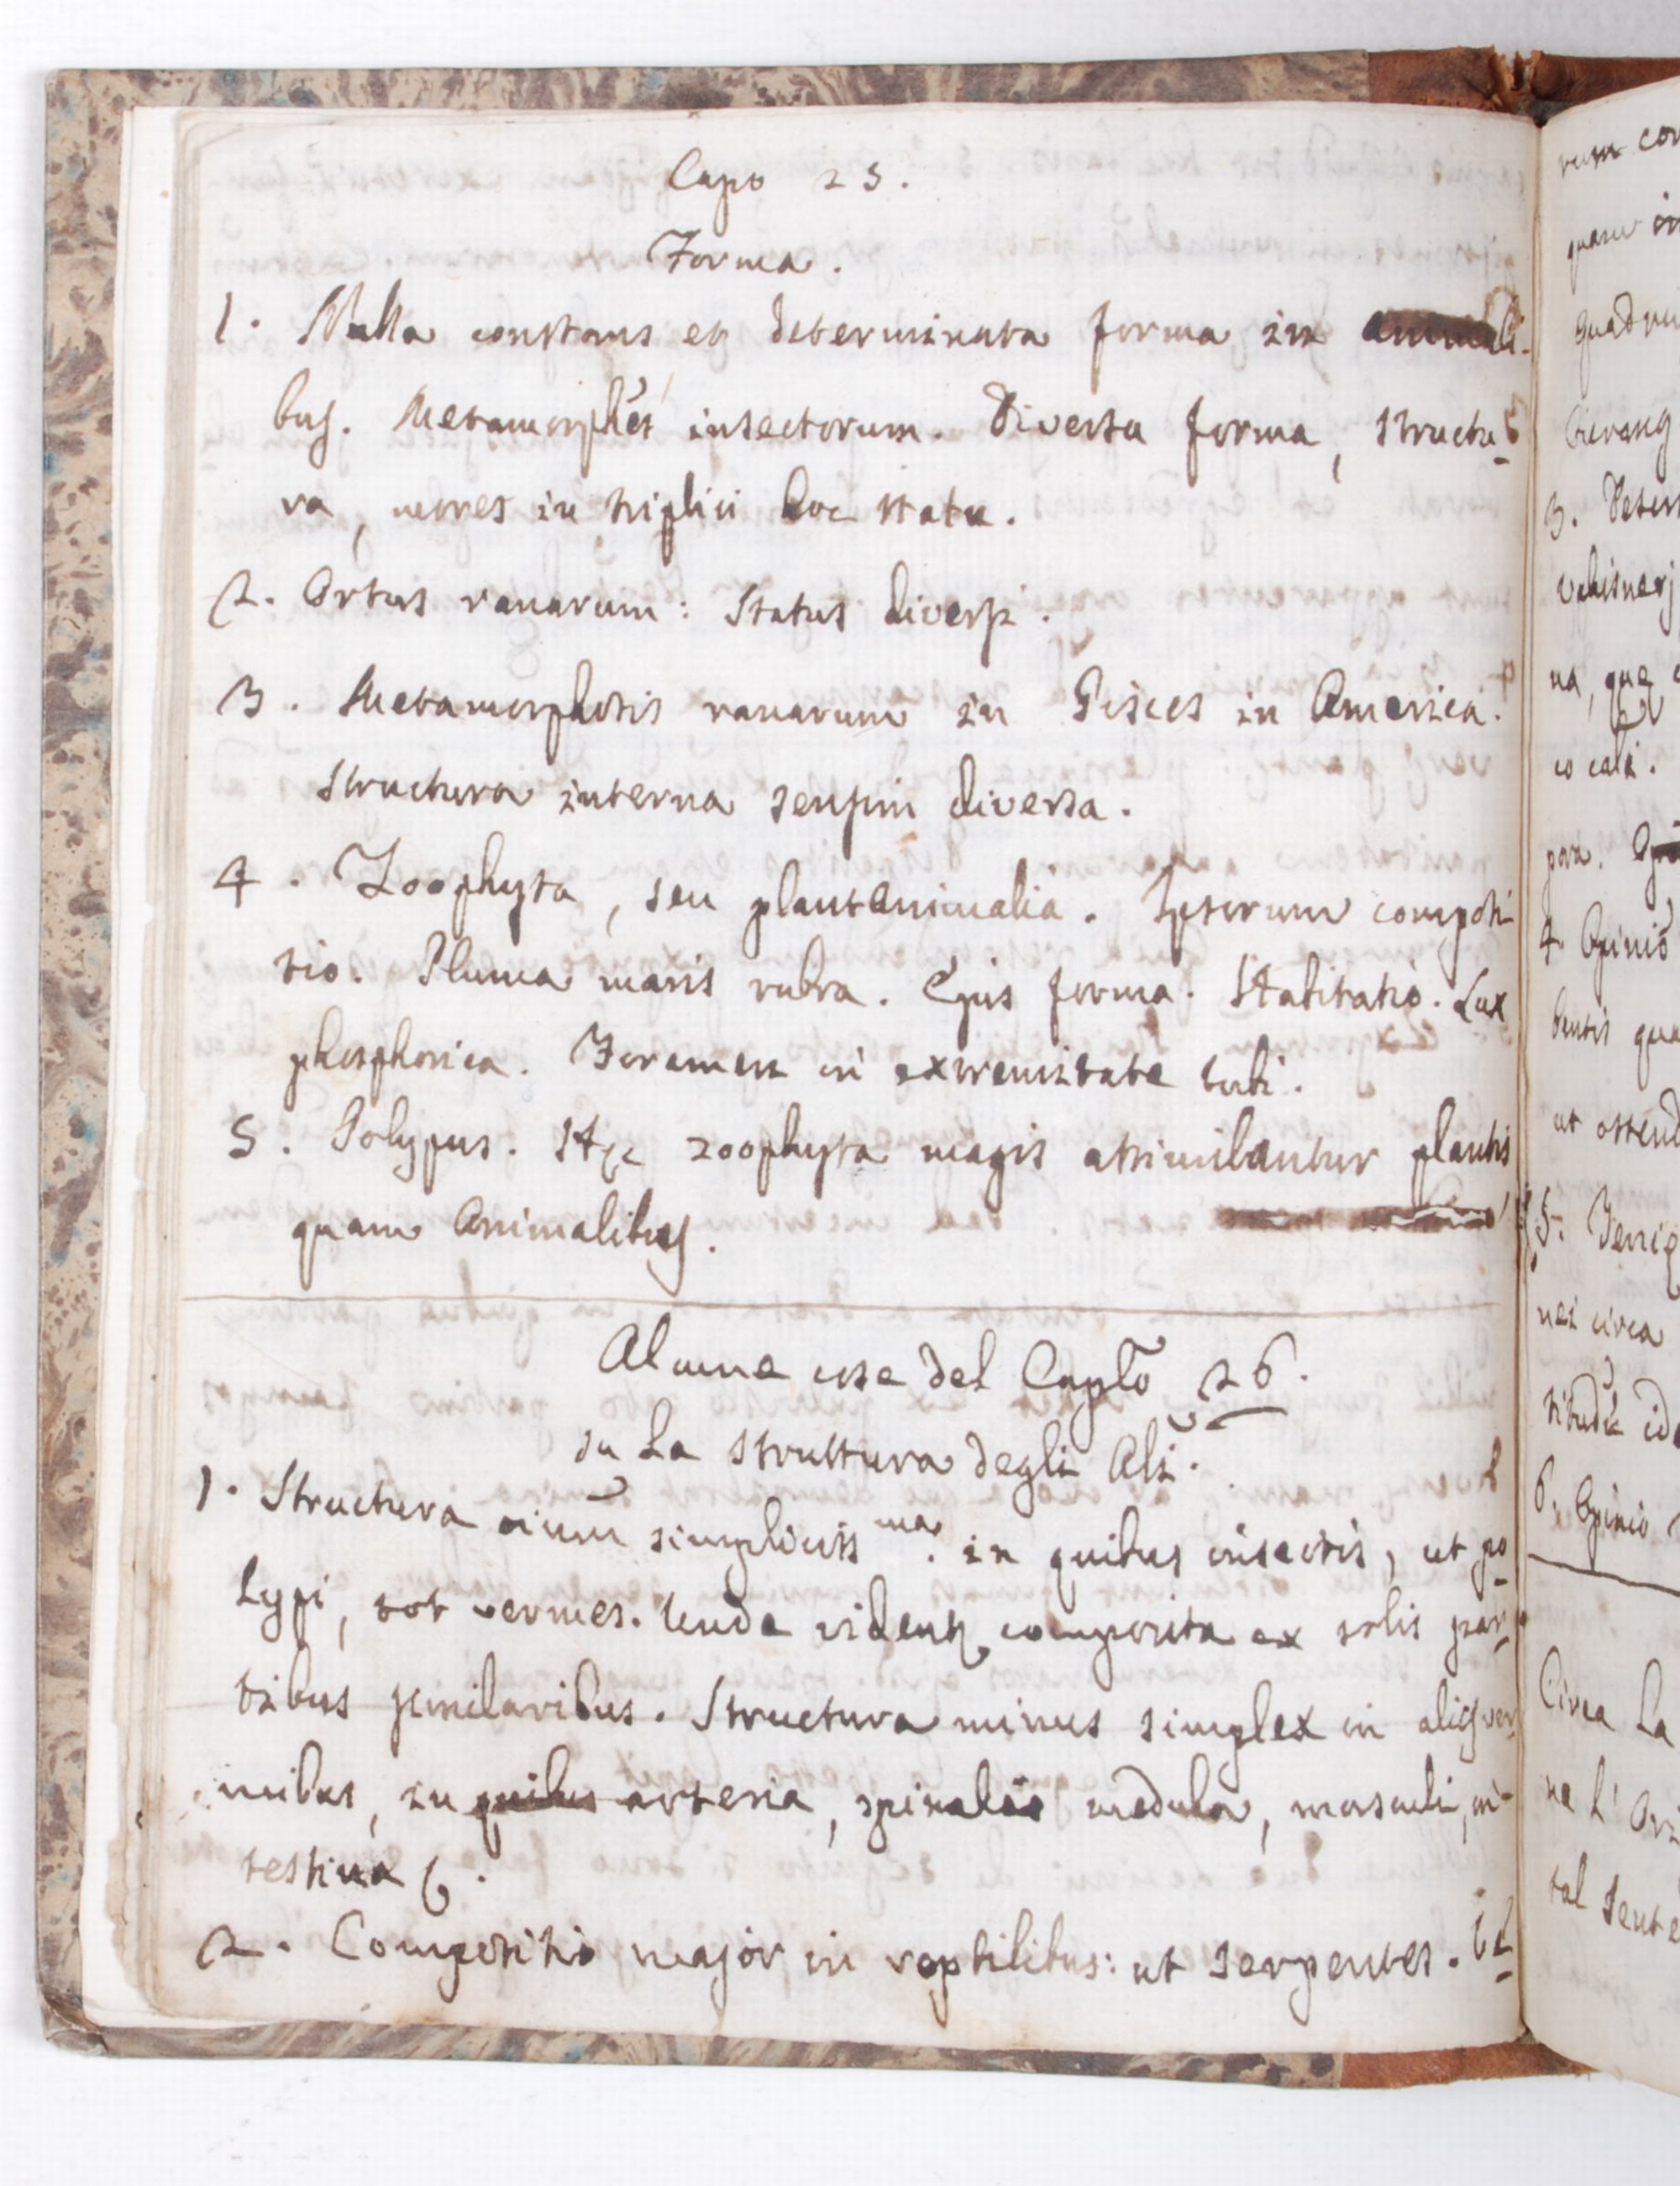 Capo 25.
Forma.
1. Nulla constans et determinata forma in animali-
bus. Metamorphes insectorum. Diversa forma, structu-
ra, mores in triplici hoc statu.
2. Ortus ranarum: Status diversi.
3. Metamorphosis ranarum in Pisces in America.
Structura interna diversa.
4. Zoophyta, seu plantanimalia. Ipsorum composi-
tio. Pluma maris rubra. Ejus forma. Lux
phosphorica. Foramen in extremitate tubi.
5. Polypus. zoophyta magis assimilantur plantis
quam Animalibus.
Alcune cose del Caplo 26.
su La struttura degli Ali.
1. Structura oium simpliciss ma. in quibus insectis, ut po-
lypi, tot vermes. Unde videntr composita ex solis par-
tibus similaribus. Structura minus simplex in aliqs ver-
mibus, in quibus arteria, spinalis medula, musculi, in-
testina &.
2. Compositio major in reptilibus: ut serpentes.
rum
quam
quadru
3.
vallisnerj
na, que
pora.
4. Opinio
bentis qua
ut ostend
5.
nei circa
6. Opinio
Circa La
na l'
tal